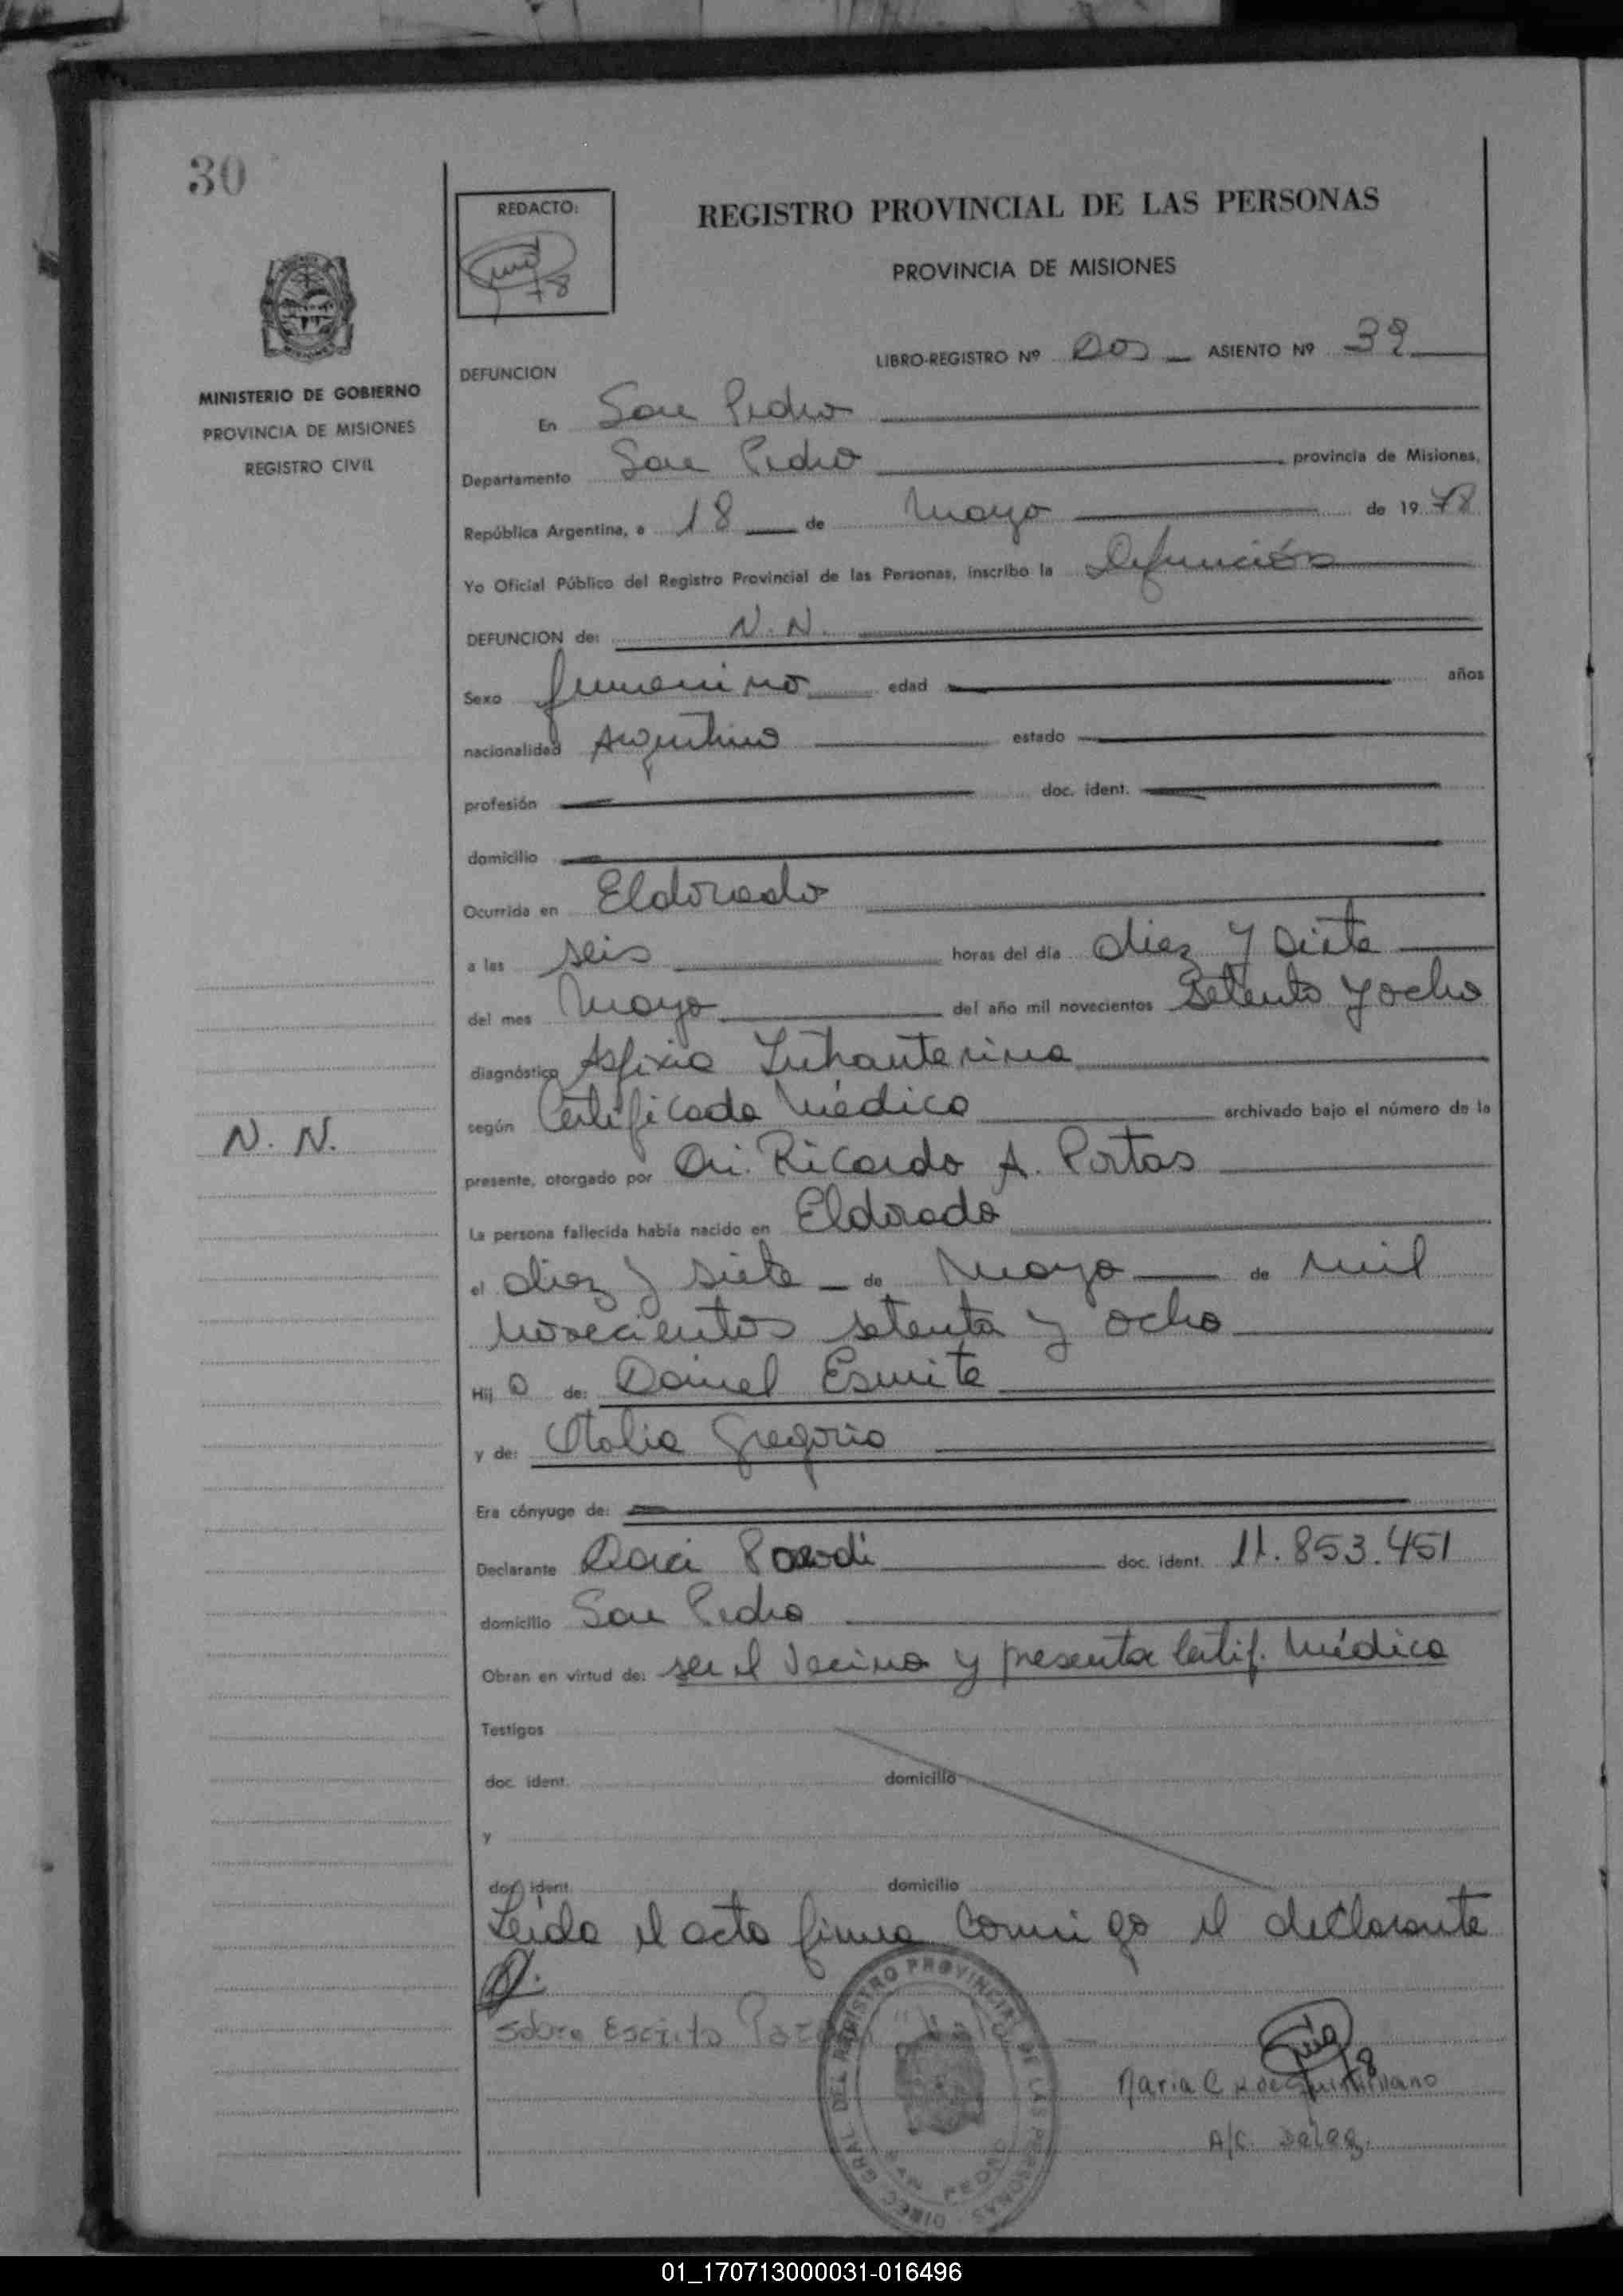 30
REDACTO:
REGISTRO PROVINCIAL DE LAS PERSONAS
PROVINCIA DE MISIONES
LIBRO-REGISTRO Nº Dos ASIENTO Nº 39
MINISTERIO DE GOBIERNO
PROVINCIA DE MISIONES
REGISTRO CIVIL
DEFUNCION
En San Pedro
Departamento San Pedro provincia de Misiones,
República Argentina, a 18 de Mayo de 1978
Yo Oficial Público del Registro Provincial de las Personas, inscribo la Defunción
DEFUNCION de: N. N.
Sexo femenino edad años
nacionalidad Argentina estado
profesión doc. ident.
domicilio
Ocurrida en Eldorado
a las seis horas del día diez y siete
del mes Mayo del año mil novecientos setenta y ocho
diagnóstico Asfixia Intrauterina
según Certificado Médico archivado bajo el número de la
N. N.
presente, otorgado por Dr. Ricardo A. Portas
La persona fallecida había nacido en Eldorado
el diez y siete de Mayo de mil
novecientos setenta y ocho
Hija de: Daniel Esmite
y de: Otalia Gregorio
Era cónyuge de:
Declarante doc. ident. 11.853.451
domicilio San Pedro
Obran en virtud de: ser el vecino y presenta certif. Médico
Testigos
doc. ident. domicilio
y
doc. ident. domicilio
Leída el acta firma conmigo el declarante
Sobre Escrito
DIREC. GRAL. DEL REGISTRO PROVINCIAL DE LAS PERSONAS
SAN PEDRO
Maria C
A/C Deleg.
01_170713000031-016496